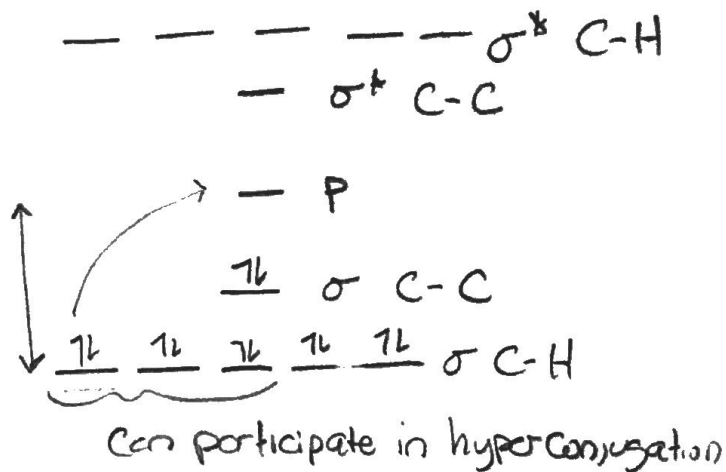 σ* C-H
σ* C-C
P
σ C-C
σ C-H
Can participate in hyperconjugation